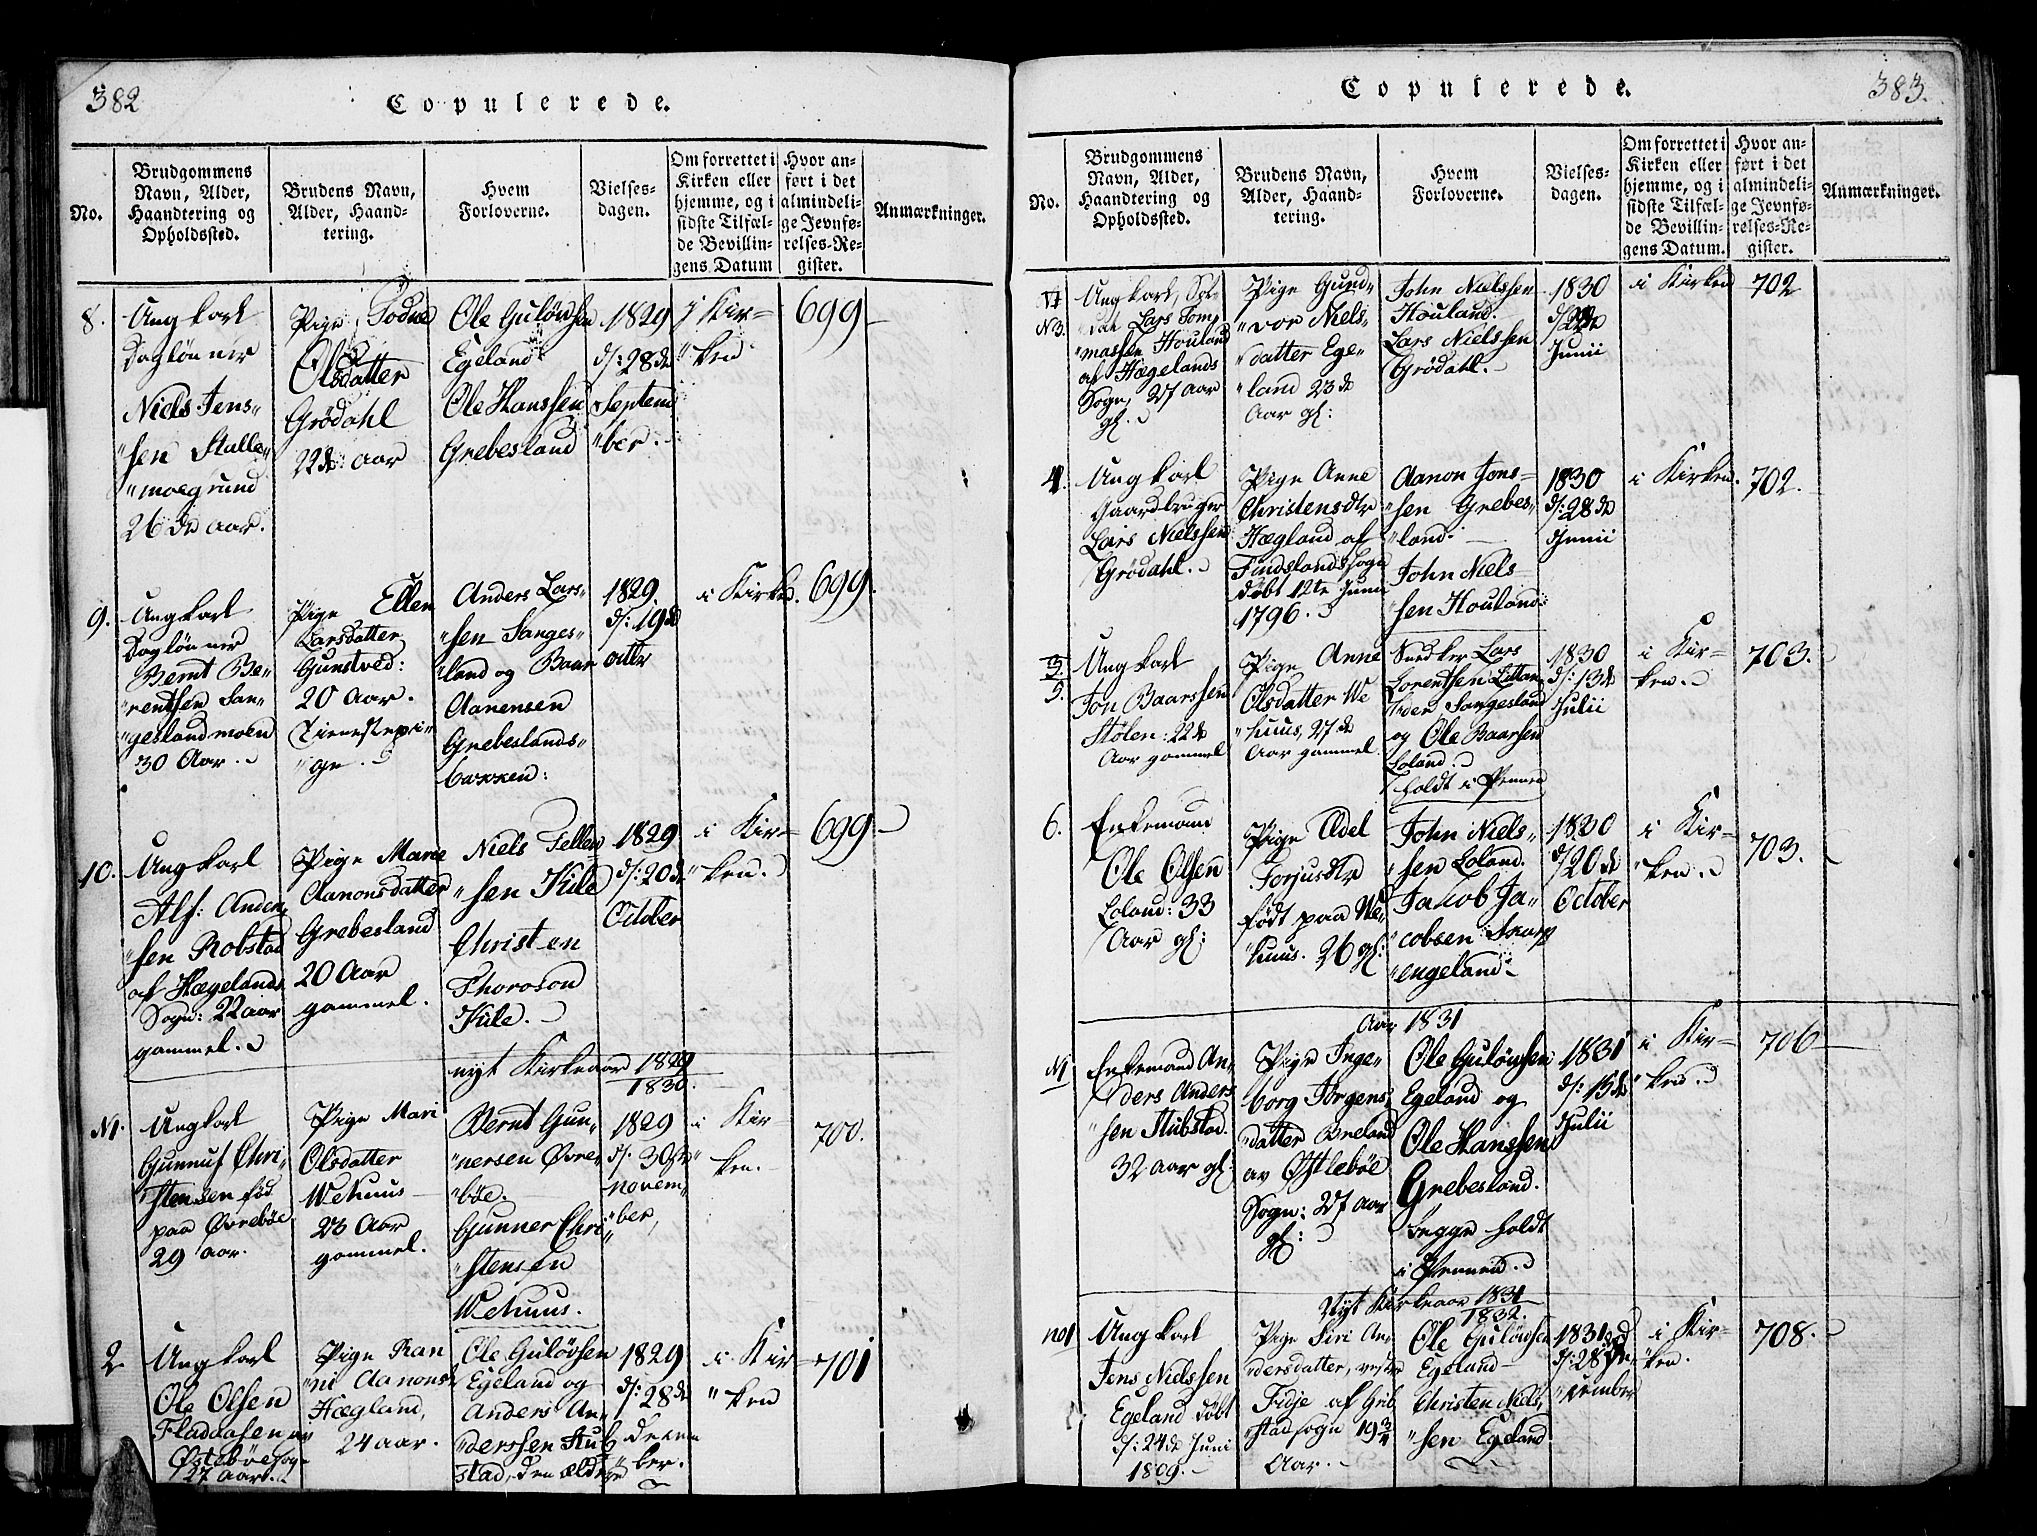 382
Copulerede.
No.
Brudgommens
Navn, Alder,
Haandtering og
Opholdssted.
Brudens Navn,
Alder, Haand-
tering.
Hvem
Forloverne.
Vielses-
dagen.
Om forrettet i
Kirken eller
hjemme, og i
sidste Tilfæl-
de Bevillin-
gens Datum
Hvor an-
ført i det
almindeli-
ge Jevnfø-
relses-Re-
gister.
Anmærkninger.
8.
Ungkarl
Daglønner
Niels Jens-
"sen Stalle-
"moegrund
26 de aar.
Pige Todne
Olsdatter
Grödahl
22de aar
Ole Gulövsen
Egeland
Ole Hanssen
Grebesland
1829
d/: 28de
Septem
"ber.
i Kir-
"ken
699
9.
Ungkarl
Daglønner
Bernt Be-
"rentsen San-
"geslandmoen
30 Aar.
Pige Ellen
Larsdatter
Gunstved:
20 Aar.
Tienestepi-
"ge.
Anders Lars-
"sen Sanges-
"land og Baar
Aanensen
Grebeslands-
bakken:
1829.
d/: 19de
octbr
i Kirken.
699.
10.
Ungkarl
Alf: Ander-
"sen Robstad
af Hægelands
Sogn: 22 aar
gammel.
Pige Marie
Aanonsdatter
Grebesland
20 Aar
gammel.
Niels Tellef
"sen Kile
Christen
Thoroson
Kile.
1829
d/: 20de
October
i Kir-
"ken.
699.
nyt Kirkeaar 1829
1830.
N1.
Ungkarl
Gunnuf Chri-
"stensen fød
paa Øvrebøe
29 aar.
Pige Mari
Olsdatter
Wehuus
23 Aar
gammel.
Bernt Gun-
"nersen Øvre-
"bøe.
Gunner Chri-
"stensen
Wehuus.
1829
d/: 30te
novem-
"ber,
i Kir-
ken.
700.
2
Ungkarl
Ole Olsen
Fladaasen av
Østebøe Sogn
27 aar.
Pige Ran
"ni Aanons-
Hægland,
24 aar.
Ole Gulövsen
Egeland og
Anders An-
"derssen Stub
stad, den ældre
1829
d/: 28de
decem
"ber.
i Kir
"ken
701
383.
Copulerede.
No.
Brudgommens
Navn, Alder,
Haandtering og
Opholdssted.
Brudens Navn,
Alder, Haand-
tering.
Hvem
Forloverne.
Vielses-
dagen.
Om forrettet i
Kirken eller
hjemme, og i
sidste Tilfæl-
de Bevillin-
gens Datum.
Hvor an-
ført i det
almindeli-
ge Jevnfø-
relses-Re-
gister.
Anmærkninger.
N3.
Ungkarl, Sol-
"dat Lars Tom
"massen Houland
af Hægelands
Sogn, 27 Aar
gl.
Pige Gund-
"vor Niels-
"datter Ege-
"land 23de
Aar gl:
John Nielssen
Houland.
Lars Nielssen
Grödahl.
1830
Junii
i Kirken
702
4.
Ungkarl
Gaardbruger
Lars Nielssen
Grödahl.
Pige Anne
Christensdtr
Hægland af
Findslands sogn
döbt 12te Junii
1796.
Aanon Jons-
"sen Grebes-
"land.
John Niels-
"sen Houland:
1830
d/: 28de
Junii
i Kirken.
702.
5.
Ungkarl
Jon Baarssen
Stølen: 22de
Aar gammel
Pige Anne
Olsdatter We
"huus, 27de
Aar gammel
Snedker Lars
Lorentsen Littan
Sangesland
og Ole Baarsen
Loland.
holdt i Pennen
1830
d/: 13de
Julii
i Kir-
ken.
703.
6.
Enkemand
Ole Olsen
Loland: 33
Aar gl:
Pige Adel
Torjusdtr
født paa We-
"huus. 26 gl:
John Niels-
"sen Loland.
Jakob Ja-
"cobsen Skarp
"engeland
1830
d/20de
October
i Kir-
"ken.
703.
Aar 1831
N1
Enkemand An-
"ders Anders
"sen Stubstad.
32 aar gl:
Pige Inge-
borg Jörgens
"datter Breland
av Øislebøe
Sogn: 27 aar
gl:
Ole Gulövsen
Egeland og
Ole Hanssen
Grebesland.
begge holdt
i Pennen.
1831
d/: 15de
Julii
i Kir-
"ken.
706
Nyt Kirkeaar 1831
1832.
no1
Ungkarl
Jens Nielssen
Egeland döbt
d/: 24de Juni
1809.
Pige Siri An-
"dersdatter, vestre
Fidje af Grib
"stad sogn 19 3/4
Aar.
Ole Gulövsen
Egeland
Christen Niels-
"sen Egeland
1831
d/: 28de
"cember
i Kir-
"ken.
708.